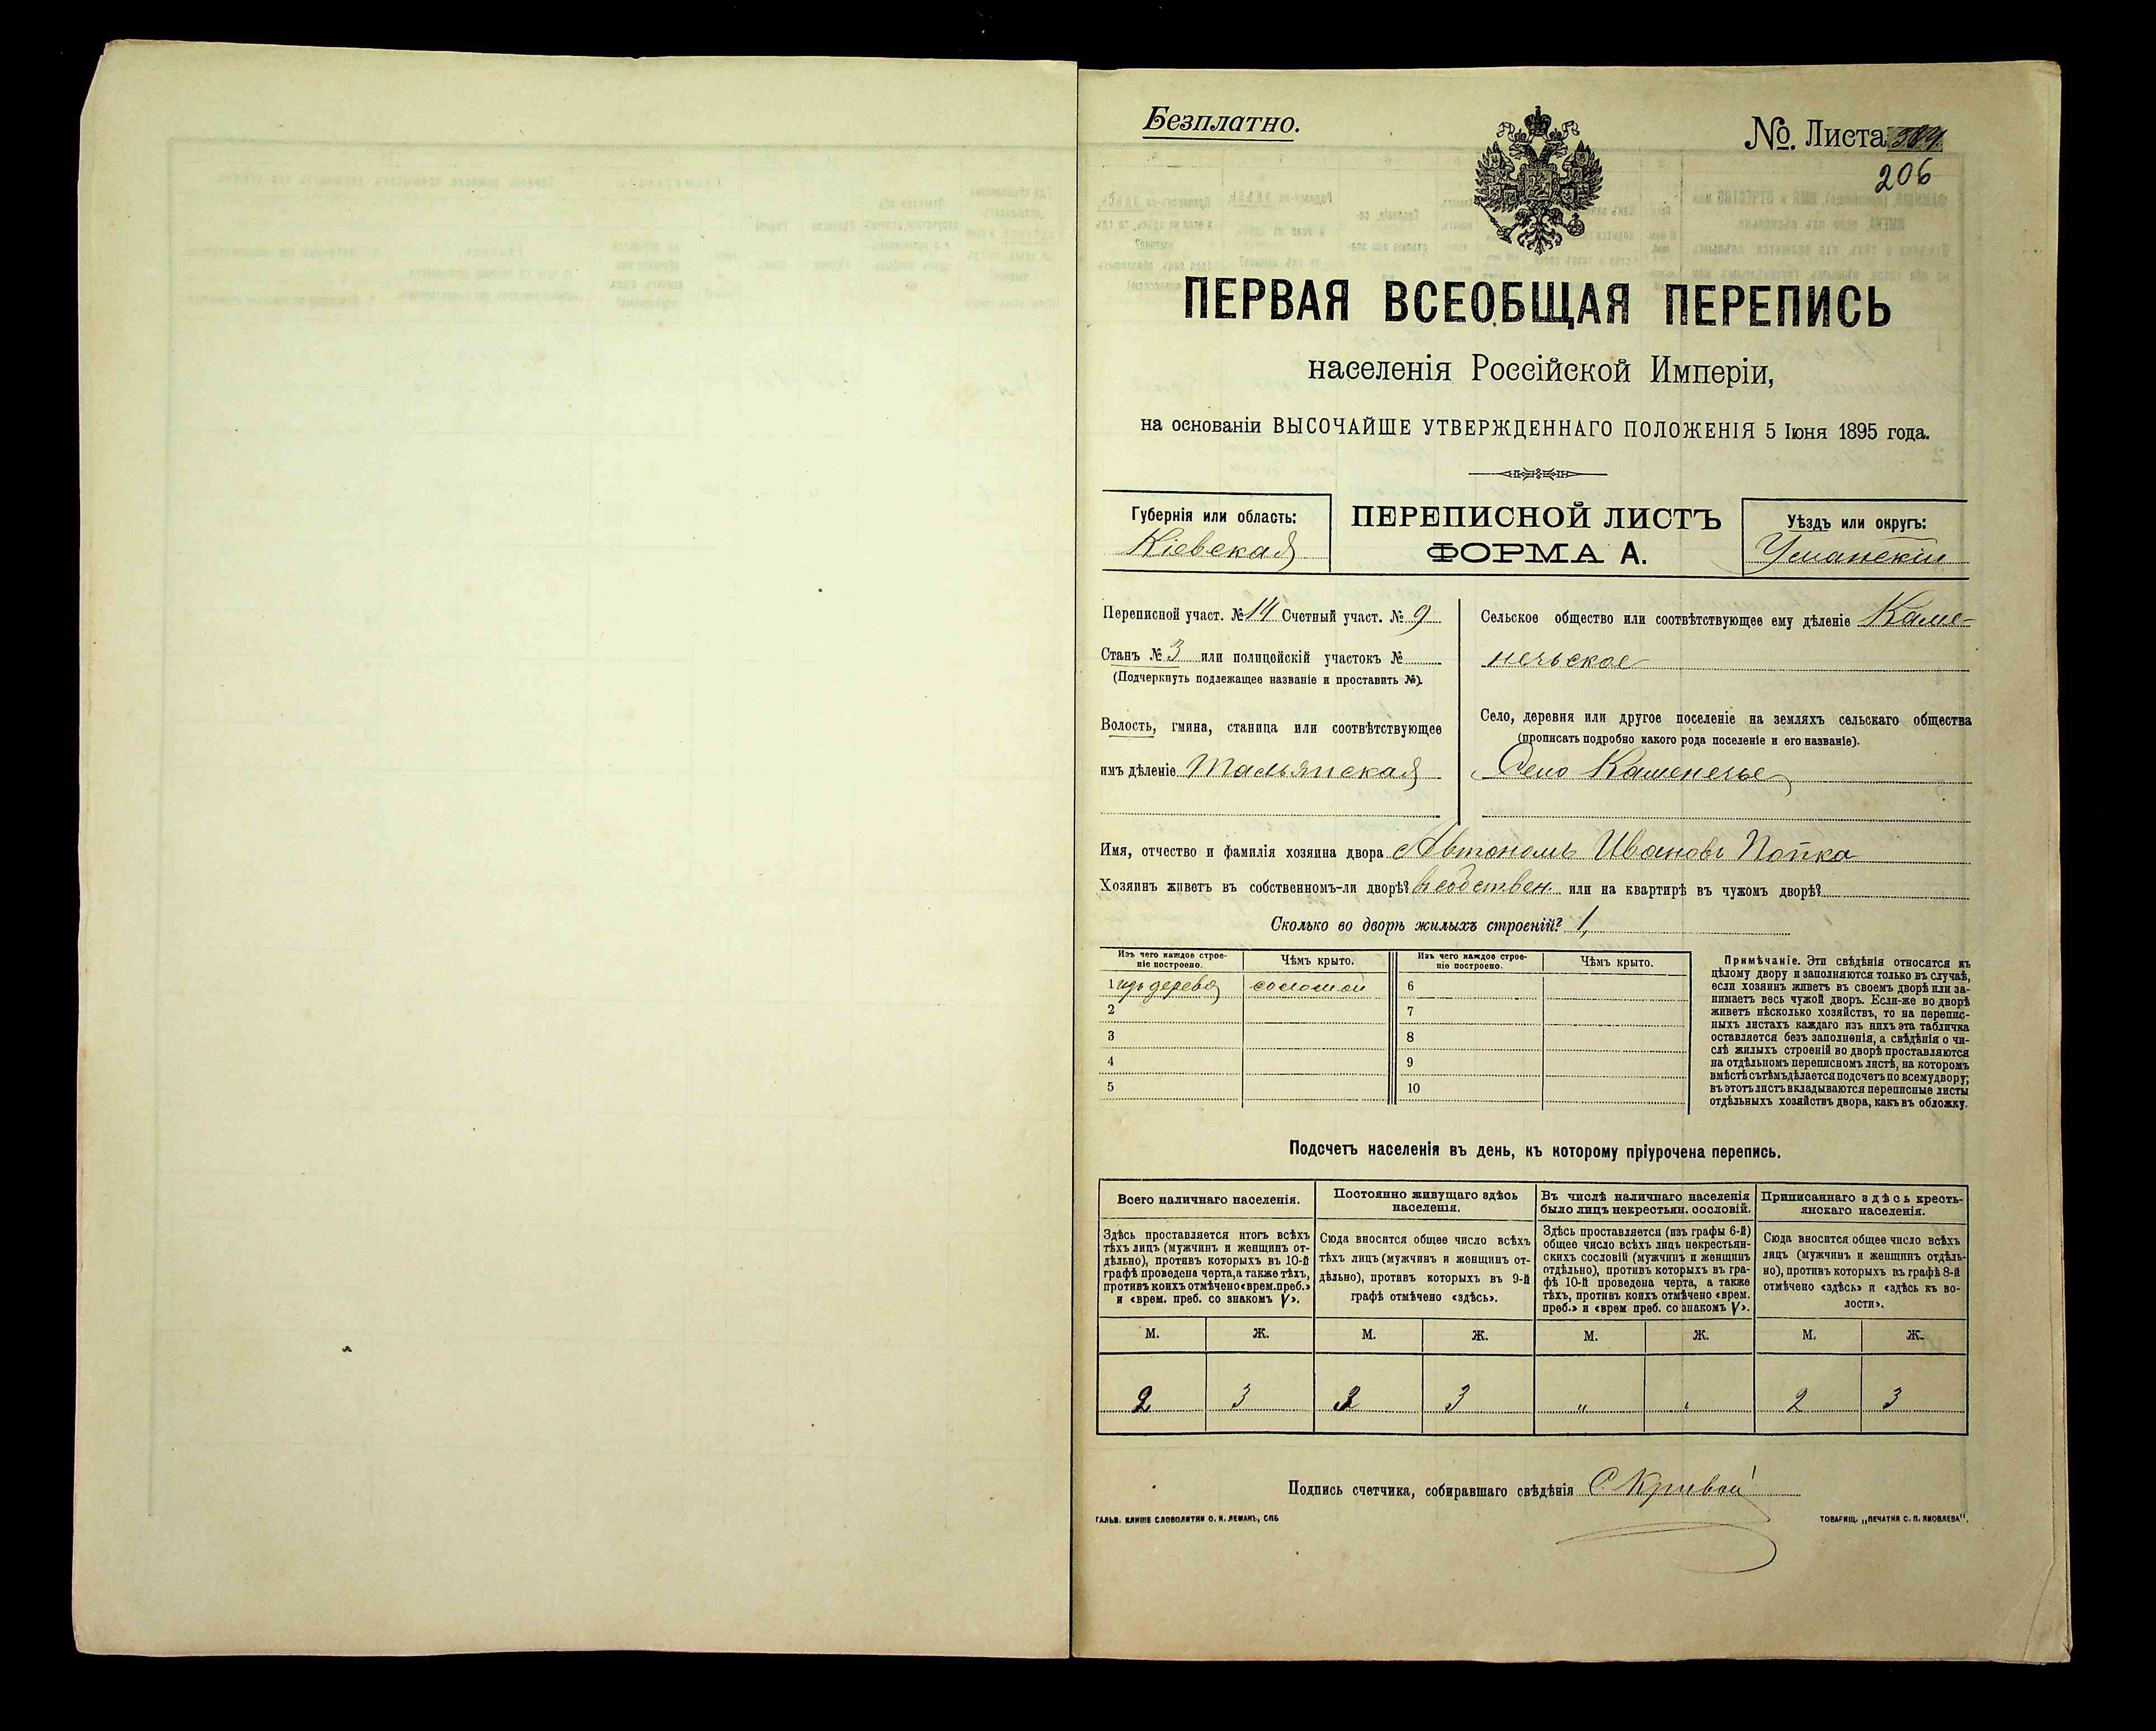 Безплатно.
№. Листа
206
ПЕРВАЯ ВСЕОБЩАЯ ПЕРЕПИСЬ
населенія Россійской Имперіи,
на основаніи ВЫСОЧАЙШЕ УТВЕРЖДЕННАГО ПОЛОЖЕНІЯ 5 Іюня 1895 года.
Губернія или область:
Кіевская
ПЕРЕПИСНОЙ ЛИСТЪ
ФОРМА А.
Уѣздъ или округъ:
Уманскій
Переписной участ. № 14 Счетный участ. № 9
Станъ № 3 или полицейскій участокъ №
(Подчеркнуть подлежащее названіе и проставить №).
Волость, гмина, станица или соотвѣтствующее
имъ дѣленіе Тальянская
Сельское общество или соотвѣтствующее ему дѣленіе Каме-
нечьское
Село, деревня или другое поселеніе на земляхъ сельскаго общества
(прописать подробно какого рода поселеніе и его названіе).
Село Каменечье
Имя, отчество и фамилія хозяина двора Автономъ Ивановъ Попка
Хозяинъ живетъ въ собственномъ-ли дворѣ? в собствен. или на квартирѣ въ чужомъ дворѣ?
Сколько во дворѣ жилыхъ строеній? 1,
Изъ чего каждое строе-
ніе построено.
Чѣмъ крыто.
Изъ чего каждое строе-
ніе построено.
Чѣмъ крыто.
1 изъ дерева соломой 6
2 7
3 8
4 9
5 10
Примѣчаніе. Эти свѣдѣнія относятся къ
цѣлому двору и заполняются только въ случаѣ,
если хозяинъ живетъ въ своемъ дворѣ или за-
нимаетъ весь чужой дворъ. Если-же во дворѣ
живетъ нѣсколько хозяйствъ, то на перепис-
ныхъ листахъ каждаго изъ нихъ эта табличка
оставляется безъ заполненія, а свѣдѣнія о чи-
слѣ жилыхъ строеній во дворѣ проставляются
на отдѣльномъ переписномъ листѣ, на которомъ
вмѣстѣ съ тѣмъ дѣлается подсчетъ по всему двору;
въ этотъ листъ вкладываются переписные листы
отдѣльныхъ хозяйствъ двора, какъ въ обложку.
Подсчетъ населенія въ день, къ которому пріурочена перепись.
Всего наличнаго населенія.
Здѣсь проставляется итогъ всѣхъ
тѣхъ лицъ (мужчинъ и женщинъ от-
дѣльно), противъ которыхъ въ 10-й
графѣ проведена черта, а также тѣхъ,
противъ коихъ отмѣчено «врем. преб.»
и «врем. преб. со знакомъ V».
Постоянно живущаго здѣсь
населенія.
Сюда вносится общее число всѣхъ
тѣхъ лицъ (мужчинъ и женщинъ от-
дѣльно), противъ которыхъ въ 9-й
графѣ отмѣчено «здѣсь».
Въ числѣ наличнаго населенія
было лицъ некрестьян. сословій.
Здѣсь проставляется (изъ графы 6-й)
общее число всѣхъ лицъ некрестьян-
скихъ сословій (мужчинъ и женщинъ
отдѣльно), противъ которыхъ въ гра-
фѣ 10-й проведена черта, а также
тѣхъ, противъ коихъ отмѣчено «врем.
преб.» и «врем преб. со знакомъ V».
Приписаннаго здѣсь кресть-
янскаго населенія.
Сюда вносится общее число всѣхъ
лицъ (мужчинъ и женщинъ отдѣль-
но), противъ которыхъ въ графѣ 8-й
отмѣчено «здѣсь» и «здѣсь къ во-
лости».
М. Ж. М. Ж. М. Ж. М. Ж.
2 3 2 3 „ „ 2 3
Подпись счетчика, собиравшаго свѣдѣнія С. Кривой
ГАЛЬВ. КЛИШЕ СЛОВОЛИТНИ О. И. ЛЕМАНЪ, СПБ
ТОВАРИЩ. „ПЕЧАТНЯ С. П. ЯКОВЛЕВА".